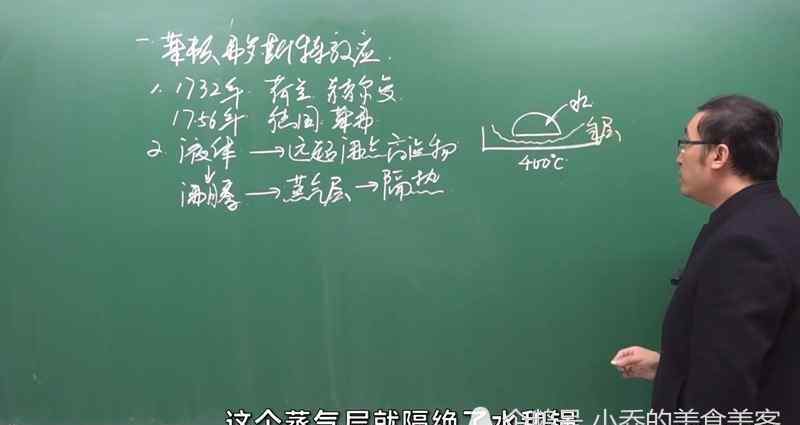 一.莱顿弗罗斯特效应.
1.1732年 荷兰
1756年 德国 莱弗
2.液体→远超沸点高温物
沸腾→蒸气层→隔热
水
气层
400℃
这个蒸气层就隔绝了水和锅
小乔的美食美客